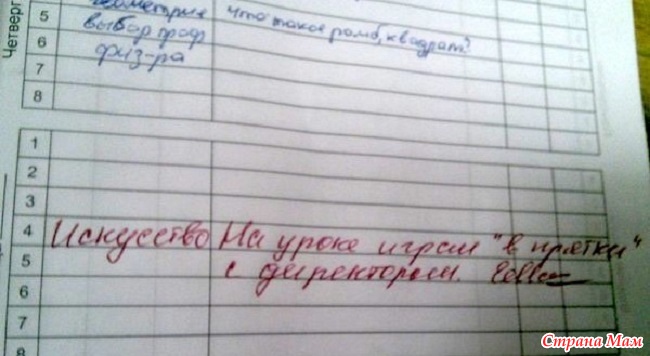 Четверг
5 геометрия что такое ромб, квадрат?
6 выбор проф
7 физ-ра
8
1
2
3
4 Искусство На уроке играл "в прятки"
5 с директором.
6
7
8
Страна Мам